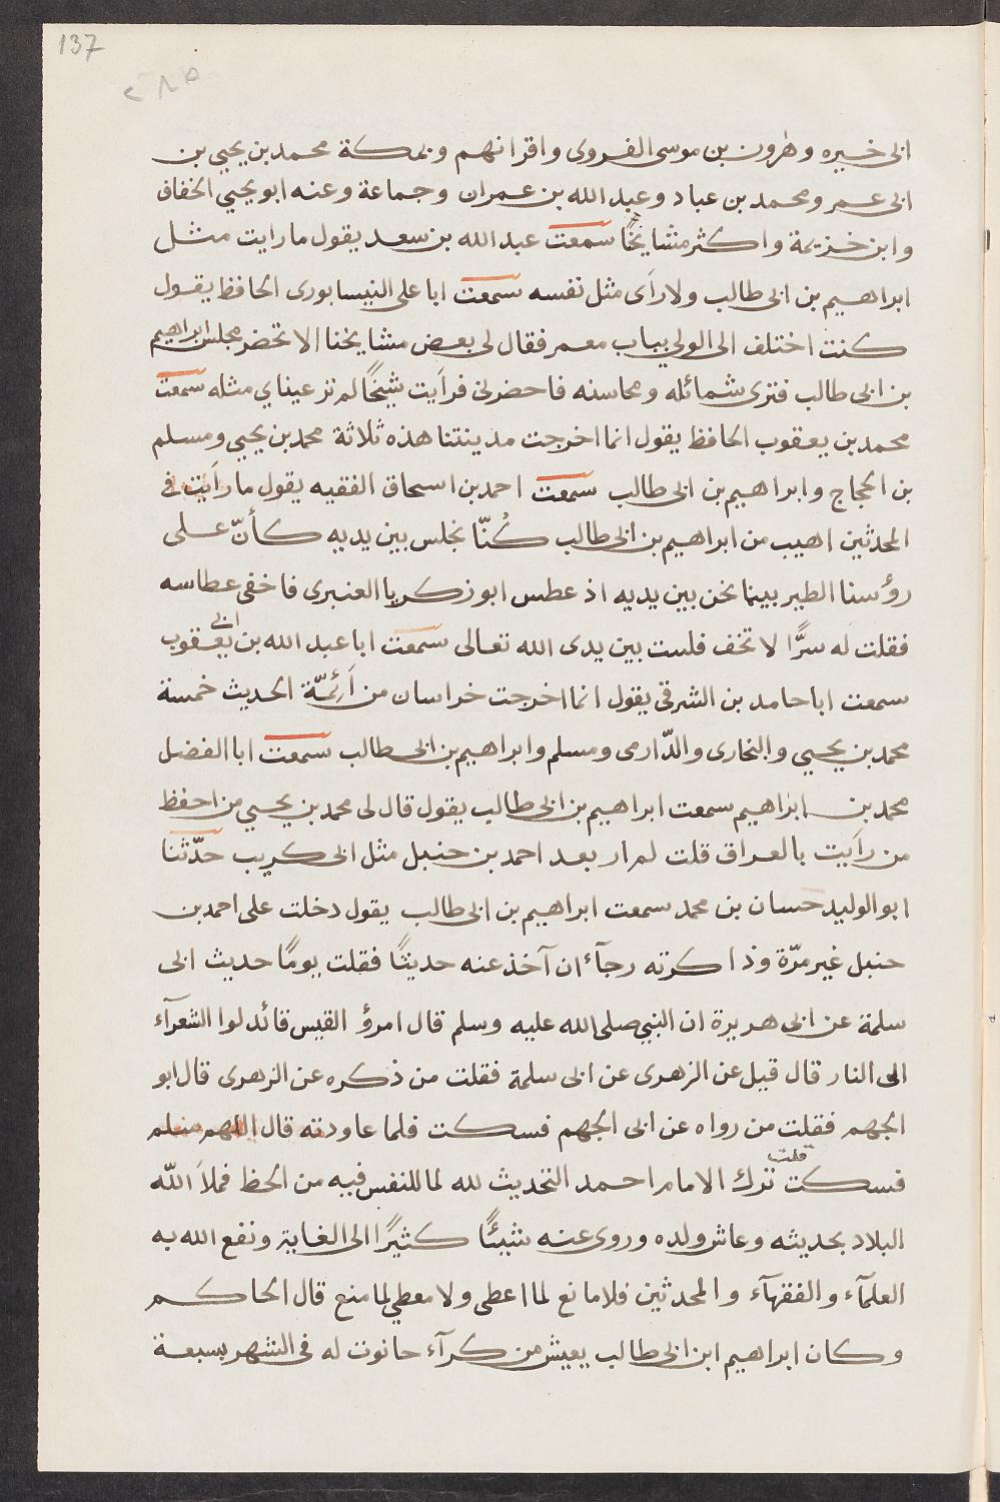 137
٢٨٥
ابى خيره وهرون بن موسى الفروى واقرانهم وبمكة محمد بن يحيى بن
ابى عمر ومحمد بن عباد وعبد الله بن عمران وجماعة وعنه ابو يحيى الخفاف
وابن خزيمة واكثر مشايخنا سمعت عبد الله بن سعد يقول ما رايت مثل
ابراهيم بن ابى طالب ولا رآى مثل نفسه سمعت ابا على النيسابورى الحافظ يقول
كنت اختلف الى الولى بباب معمر فقال لى بعض مشايخنا الا تحضر مجلس ابراهيم
بن ابى طالب فترى شمائله ومحاسنه فاحضرنى فرآيت شيخًا لم تر عيناي مثله سمعت
محمد بن يعقوب الحافظ يقول انما اخرجت مدينتنا هذه ثلاثة محمد بن يحيى ومسلم
بن الحجاج وابراهيم بن ابى طالب سمعت احمد بن اسحاق الفقيه يقول ما رآيت فى
المحدثين اهيب من ابراهيم بن ابى طالب كُنّا نجلس بين يديه كأنّ على
رؤسنا الطير بينما نحن بين يديه اذ عطس ابو زكريا العنبرى فاخفى عطاسه
فقلت له سرًّا لا تخف فلست بين يدى الله تعالى سمعت ابا عبد الله بن ابى يعقوب
سمعت ابا حامد بن الشرقى يقول انما اخرجت خراسان من آئِمّة الحديث خمسة
محمد بن يحيى والبخارى والدّارمى ومسلم وابراهيم بن ابى طالب سمعت ابا الفضل
محمد بن ابراهيم سمعت ابراهيم بن ابى طالب يقول قال لى محمد بن يحيى من احفظ
من رآيت بالعراق قلت لم ار بعد احمد بن حنبل مثل ابى كريب حدّثنا
ابو الوليد حسان بن محمد سمعت ابراهيم بن ابى طالب يقول دخلت على احمد بن
حنبل غير مرّة وذاكرته رجآء ان آخذ عنه حديثًا فقلت يومًا حديث ابى
سلمة عن ابى هريرة ان النبى صلى الله عليه وسلم قال امرؤ القيس قائد لوا الشعرآء
الى النار قال قيل عن الزهرى عن ابى سلمة فقلت من ذكره عن الزهرى قال ابو
الجهم فقلت من رواه عن ابى الجهم فسكت فلما عاودته قال اللهم سلم
فسكت قلت ترك الامام احمد التحديث لله لما للنفس فيه من الحظ فملآ اللّه
البلاد بحديثه وعاش ولده وروى عنه شيئًا كثيرًا الى الغاية ونفع الله به
العلمآء والفقهآء والمحدثين فلا مانع لما اعطى ولا معطى لما منع قال الحاكم
وكان ابراهيم ابن ابى طالب يعيش من كرآء حانوت له فى الشهر بسبعة